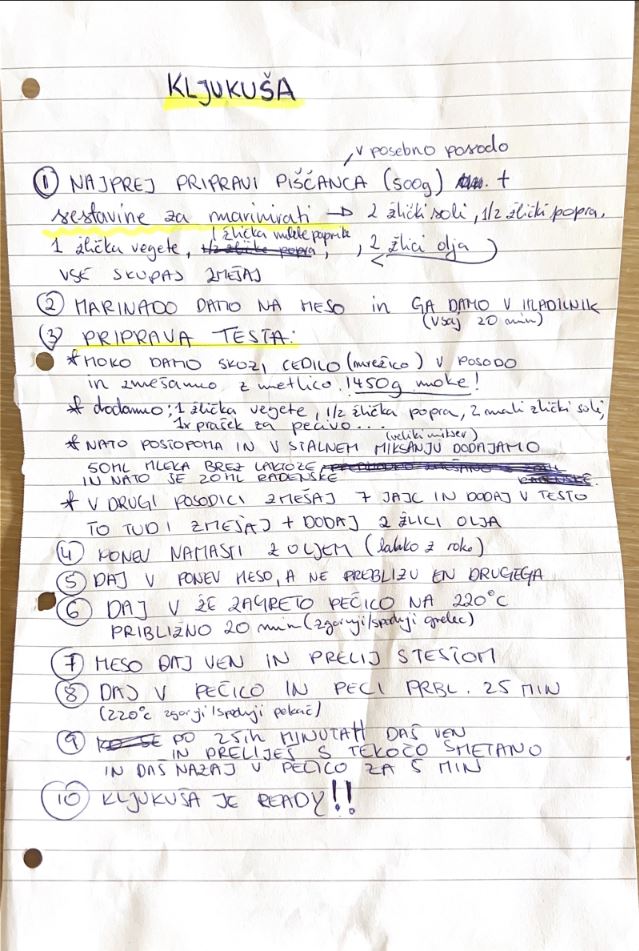 KLJUKUŠA
v posebno posodo
1 NAJPREJ PRIPRAVI PIŠČANCA (500g) +
sestavine za marinirati → 2 žlički soli, 1/2 žlički popra,
1 žlička mlete paprike
1 žlička vegete, 1/2 žličke popra, , 2 žlici olja
VSE SKUPAJ ZMEŠAJ
2 MARINADO DAMO NA MESO in GA DAMO V HLADILNIK
(vsaj 20 min)
3 PRIPRAVA TESTA:
* MOKO DAMO SKOZI CEDILO (mrežico) V POSODO
in zmešamo z metlico. 1450g moke!
* dodamo: 1 žlička vegete, 1/2 žlička popra, 2 mali žlički soli,
1x prašek za pecivo...
(veliki mikser)
* NATO POSTOPOMA IN V STALNEM MIKSANJU DODAJAMO
50ML MLEKA BREZ LAKTOZE
IN NATO ŠE 20ML RADENSKE
* V DRUGI POSODICI ZMEŠAJ 7 JAJC IN DODAJ V TESTO
TO TUDI ZMEŠAJ + DODAJ 2 ŽLICI OLJA
4 PONEV NAMASTI Z OLJEM (lahko z roko)
5 DAJ V PONEV MESO, A NE PREBLIZU EN DRUGEGA
6 DAJ V ŽE ZAGRETO PEČICO NA 220°C
PRIBLIŽNO 20 min (zgornji/spodnji grelec)
7 MESO DAJ VEN IN PRELIJ S TESTOM
8 DAJ V PEČICO IN PECI PRBL. 25 MIN
(220°C zgornji/spodnji pekač)
9 PO 25ih MINUTAH DAŠ VEN
IN PRELIJEŠ S TEKOČO SMETANO
IN DAŠ NAZAJ V PEČICO ZA 5 MIN
10 KLJUKUŠA JE READY!!